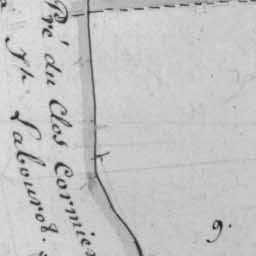 Pré du Clos Cormier
Jh Labourot.
9.